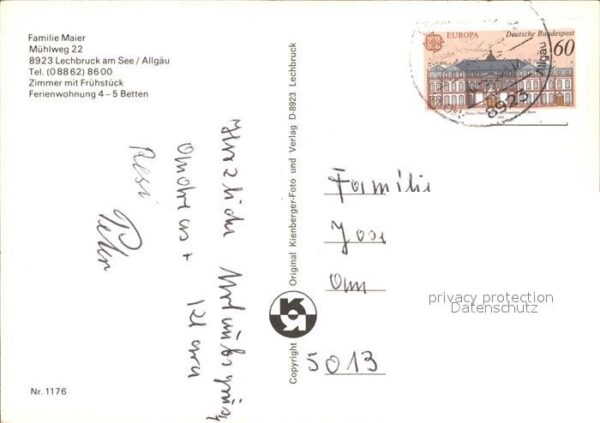 Familie Maier
Mühlweg 22
8923 Lechbruck am See / Allgäu
Tel. (08862) 8600
Zimmer mit Frühstück
Ferienwohnung 4 – 5 Betten
Herzliche
Andreas + Klara
Resi
Peter
Copyright
Original Kienberger-Foto und Verlag D-8923 Lechbruck
EUROPA
Deutsche Bundespost
60
8923
Allgäu
Familie
5013
privacy protection
Datenschutz
Nr. 1176